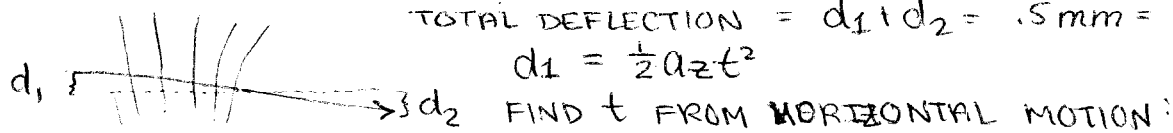 TOTAL DEFLECTION = d1 + d2 = .5mm =
d1 = 1/2 azt²
d1
d2 FIND t FROM HORIZONTAL MOTION: